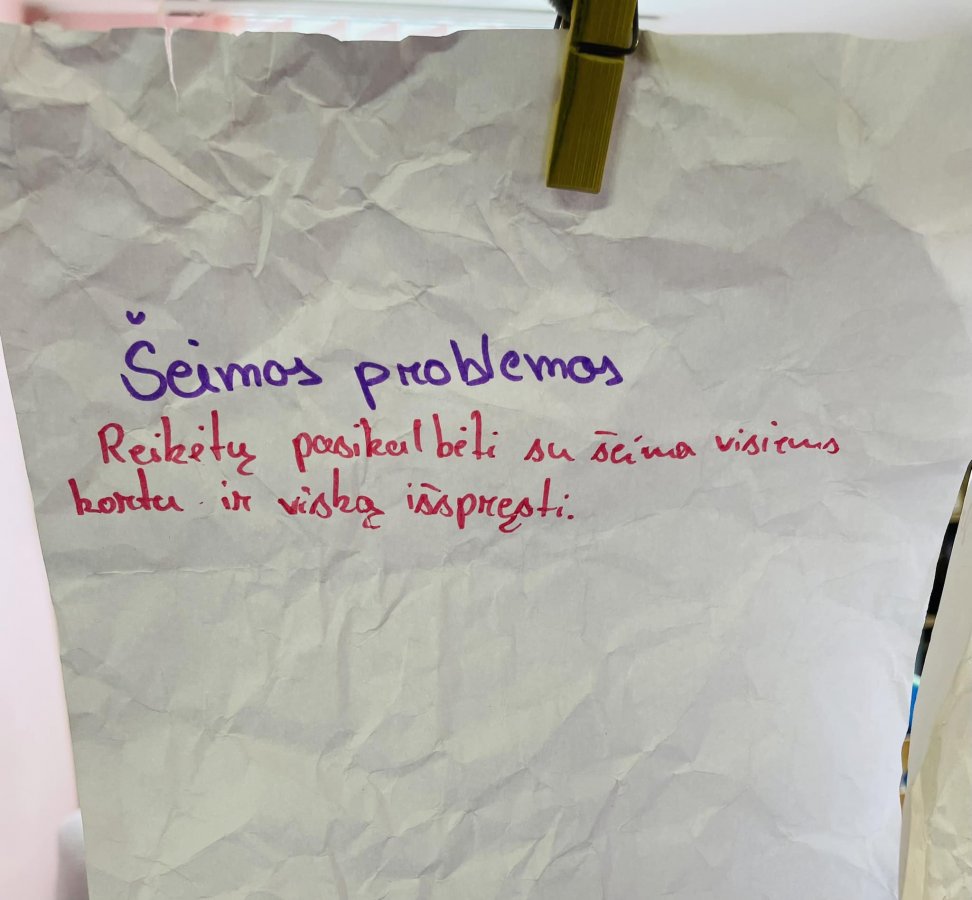 Šeimos problemos
Reikėtų pasikalbėti su šeima visiems
kartu ir viską išspręsti.